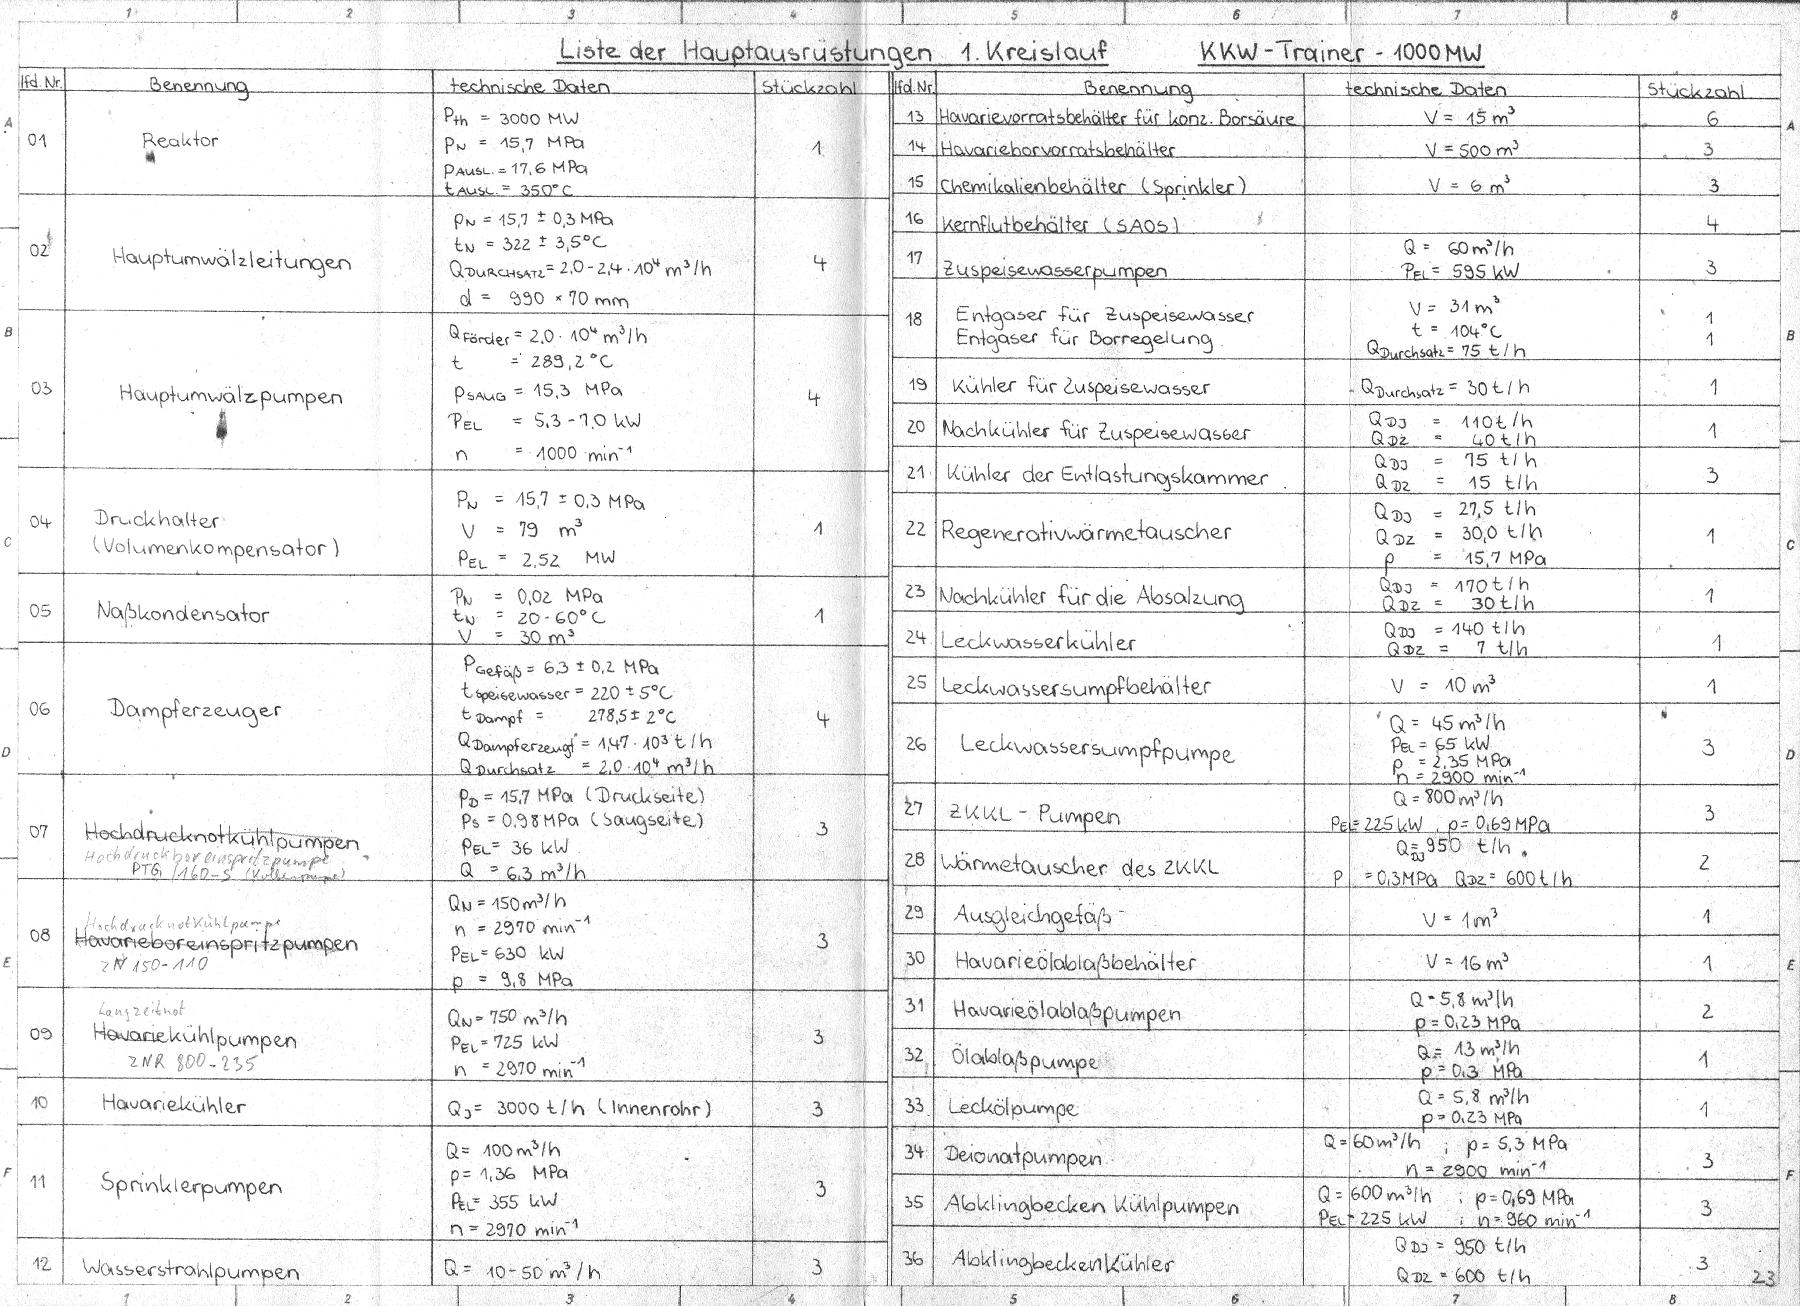 1 2 3 4 5 6 7 8
Liste der Hauptausrüstungen 1. Kreislauf KKW-Trainer - 1000MW
lfd. Nr. Benennung technische Daten Stückzahl
A
01 Reaktor 1
Pth = 3000 MW
PN = 15,7 MPa
PAUSL. = 17,6 MPa
tAUSL. = 350°C
02 Hauptumwälzleitungen 4
PN = 15,7 ± 0,3 MPa
tN = 322 ± 3,5°C
QDURCHSATZ = 2,0-2,4·10⁴ m³/h
d = 990 × 70 mm
B
03 Hauptumwälzpumpen 4
QFörder = 2,0·10⁴ m³/h
t = 289,2°C
PSAUG = 15,3 MPa
PEL = 5,3-7,0 kW
n = 1000 min⁻¹
C
04 Druckhalter 1
(Volumenkompensator)
PN = 15,7 ± 0,3 MPa
V = 79 m³
PEL = 2,52 MW
05 Naßkondensator 1
PN = 0,02 MPa
tN = 20-60°C
V = 30 m³
D
06 Dampferzeuger 4
PGefäß = 6,3 ± 0,2 MPa
tSpeisewasser = 220 ± 5°C
tDampf = 278,5 ± 2°C
QDampferzeugt = 1,47·10³ t/h
QDurchsatz = 2,0·10⁴ m³/h
07 Hochdrucknotkühlpumpen 3
Hochdruckboreinspritzpumpe
PTGi /160-S (Kolbenpumpe)
PD = 15,7 MPa (Druckseite)
PS = 0,98 MPa (Saugseite)
PEL = 36 kW
Q = 6,3 m³/h
E
Hochdrucknotkühlpumpe
08 Havarieboreinspritzpumpen 3
ZN 150-110
QN = 150 m³/h
n = 2970 min⁻¹
PEL = 630 kW
p = 9,8 MPa
Langzeitnot
09 Havariekühlpumpen 3
ZNR 800-235
QN = 750 m³/h
PEL = 725 kW
n = 2970 min⁻¹
10 Havariekühler QJ = 3000 t/h (Innenrohr) 3
F
11 Sprinklerpumpen 3
Q = 100 m³/h
p = 1,36 MPa
PEL = 355 kW
n = 2970 min⁻¹
12 Wasserstrahlpumpen Q = 10-50 m³/h 3
lfd. Nr. Benennung technische Daten Stückzahl
13 Havarievorratsbehälter für konz. Borsäure V = 15 m³ 6
A
14 Havarieborvorratsbehälter V = 500 m³ 3
15 Chemikalienbehälter (Sprinkler) V = 6 m³ 3
16 Kernflutbehälter (SAOS) 4
17 Zuspeisewasserpumpen 3
Q = 60 m³/h
PEL = 595 kW
18 Entgaser für Zuspeisewasser 1
Entgaser für Borregelung 1
V = 31 m³
t = 104°C
QDurchsatz = 75 t/h
B
19 Kühler für Zuspeisewasser QDurchsatz = 30 t/h 1
20 Nachkühler für Zuspeisewasser 1
QDJ = 110 t/h
QDZ = 40 t/h
21 Kühler der Entlastungskammer 3
QDJ = 75 t/h
QDZ = 15 t/h
22 Regenerativwärmetauscher 1
QDJ = 27,5 t/h
QDZ = 30,0 t/h
p = 15,7 MPa
C
23 Nachkühler für die Absalzung 1
QDJ = 170 t/h
QDZ = 30 t/h
24 Leckwasserkühler 1
QDJ = 140 t/h
QDZ = 7 t/h
25 Leckwassersumpfbehälter V = 10 m³ 1
26 Leckwassersumpfpumpe 3
Q = 45 m³/h
PEL = 65 kW
p = 2,35 MPa
n = 2900 min⁻¹
D
27 ZKKL - Pumpen 3
Q = 800 m³/h
PEL = 225 kW, p = 0,69 MPa
28 Wärmetauscher des ZKKL 2
QDJ = 950 t/h
P = 0,3 MPa QDZ = 600 t/h
29 Ausgleichgefäß V = 1 m³ 1
30 Havarieölablaßbehälter V = 16 m³ 1
E
31 Havarieölablaßpumpen 2
Q = 5,8 m³/h
p = 0,23 MPa
32 Ölablaßpumpe 1
Q = 13 m³/h
p = 0,3 MPa
33 Leckölpumpe 1
Q = 5,8 m³/h
p = 0,23 MPa
34 Deionatpumpen 3
Q = 60 m³/h ; p = 5,3 MPa
n = 2900 min⁻¹
F
35 Abklingbecken Kühlpumpen 3
Q = 600 m³/h ; p = 0,69 MPa
PEL = 225 kW ; n = 960 min⁻¹
36 Abklingbeckenkühler 3
QDJ = 950 t/h
QDZ = 600 t/h
23
1 2 3 4 5 6 7 8